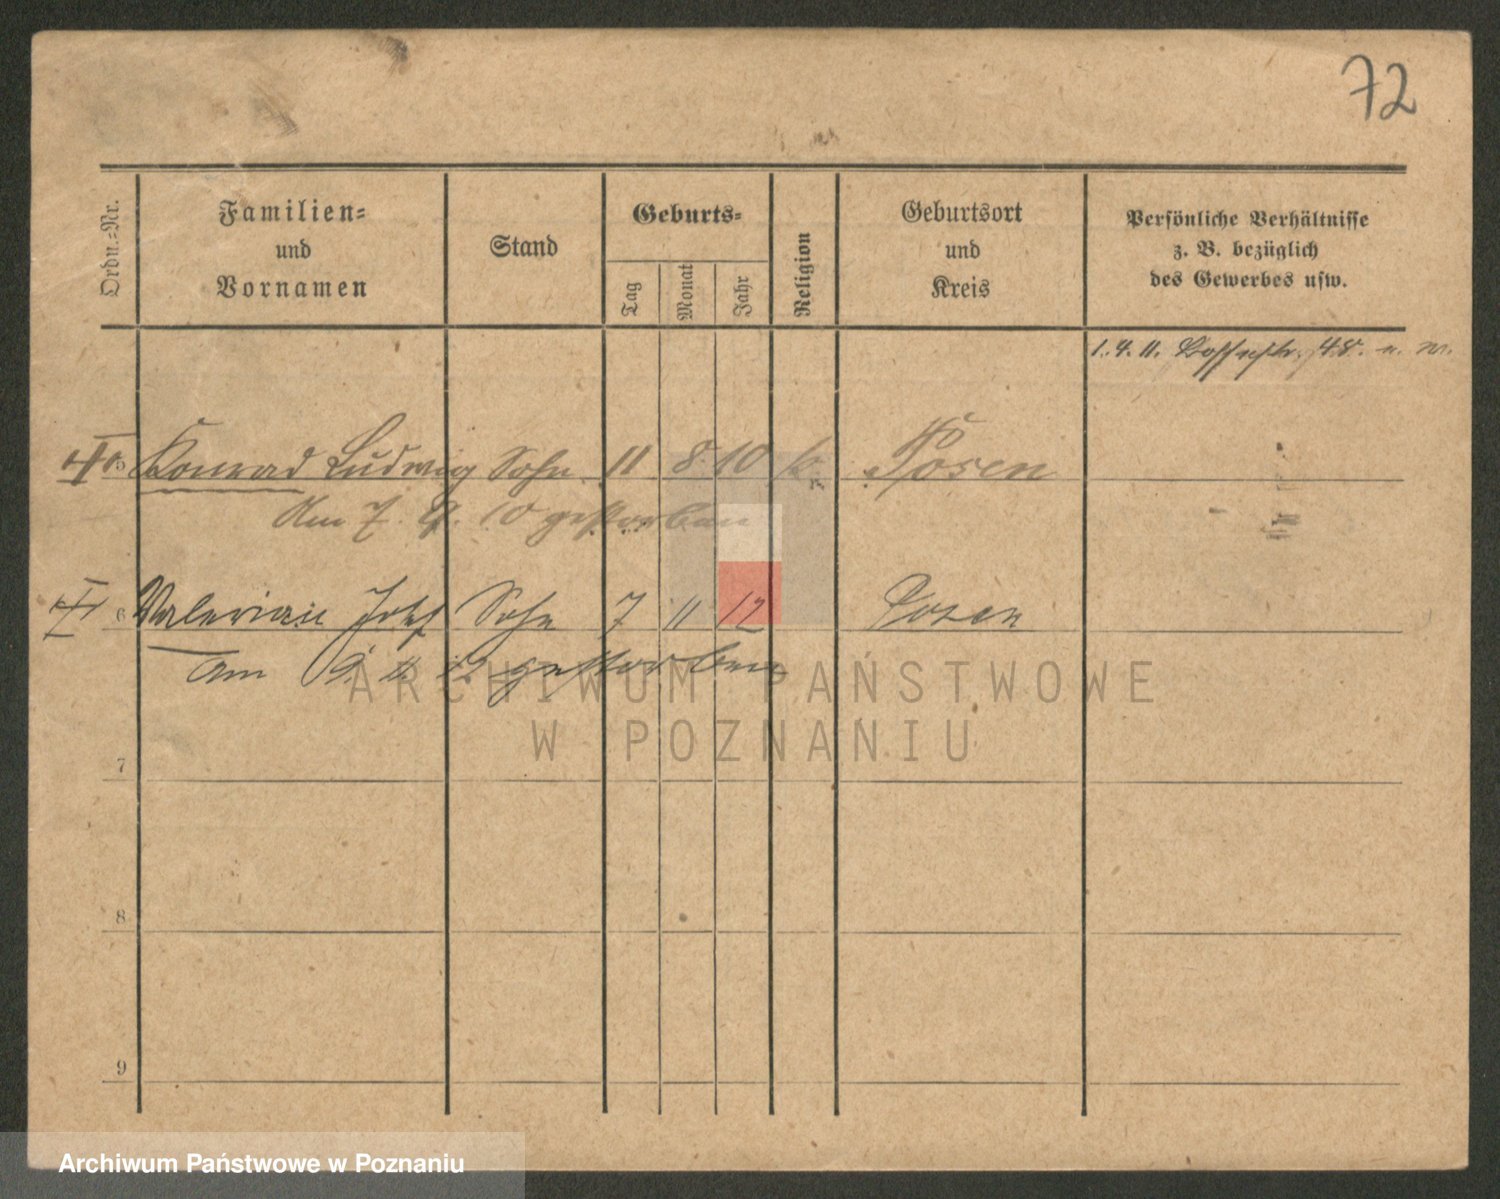 72
Ordn.=Nr.
Familien=
und
Vornamen
Stand
Geburts=
Tag
Monat
Jahr
Religion
Geburtsort
und
Kreis
Persönliche Verhältnisse
z. B. bezüglich
des Gewerbes usw.
1. 4. 11. 48. n. W.
5 Konrad Ludwig Sohn 11 8. 10 k. Posen
Am 7. 9. 10 gestorben
6 Valerian Josef Sohn 7 11 12 Posen
am 9. 12 gestorben
ARCHIWUM PAŃSTWOWE
W POZNANIU
7
8
9
Archiwum Państwowe w Poznaniu